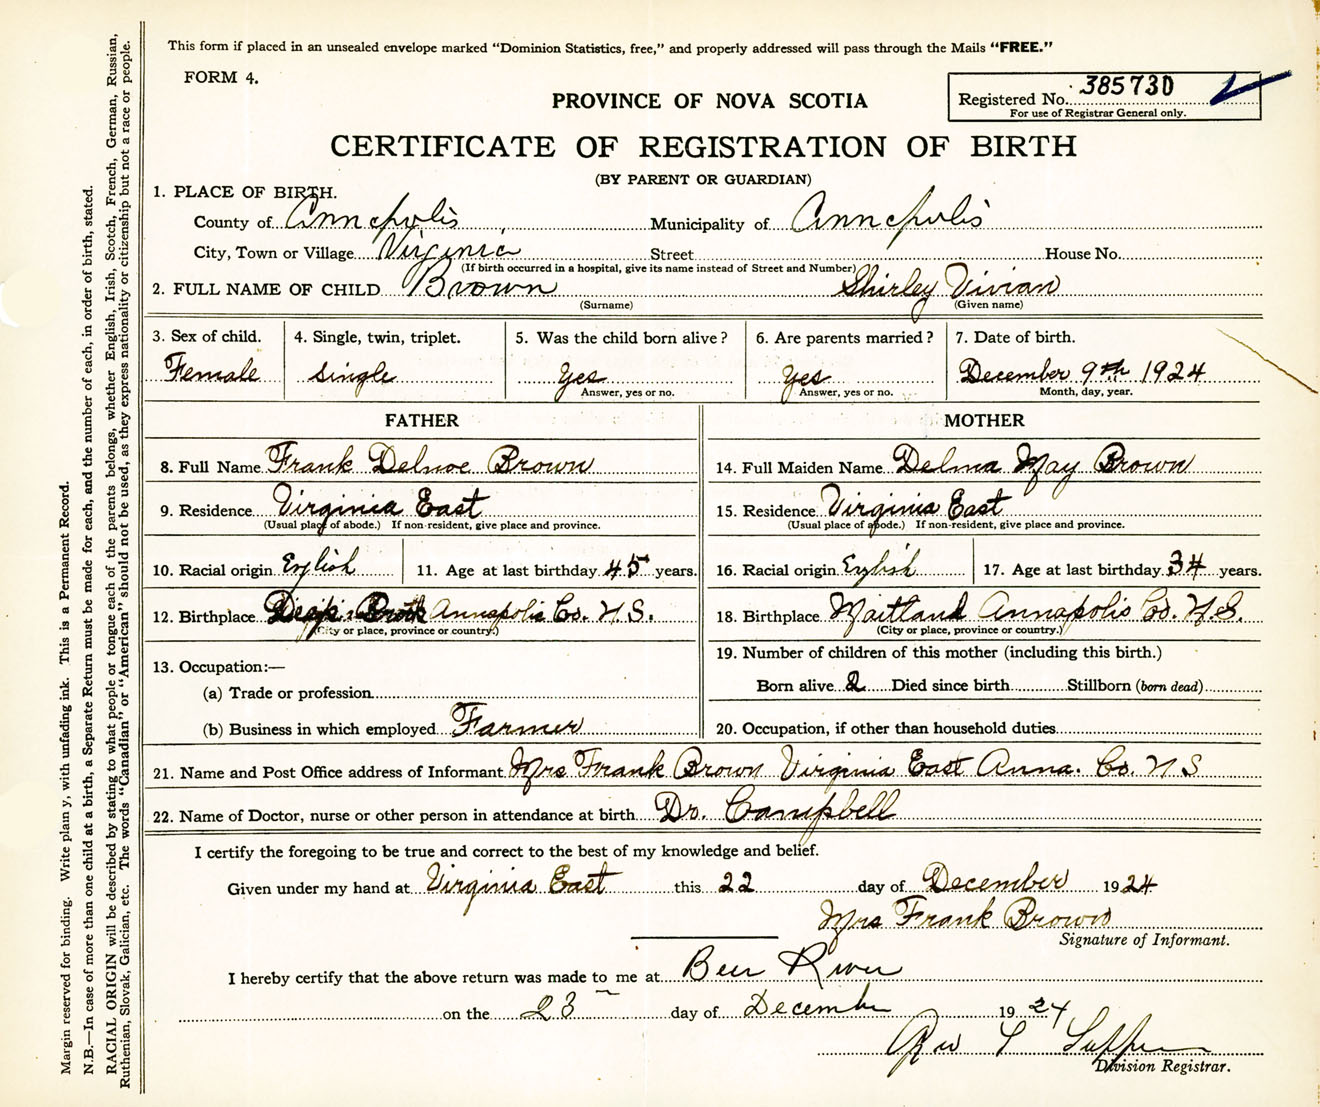 This form if placed in an unsealed envelope marked “Dominion Statistics, free,” and properly addressed will pass through the Mails “FREE.”
FORM 4.
Registered No. 385730
For use of Registrar General only.
PROVINCE OF NOVA SCOTIA
CERTIFICATE OF REGISTRATION OF BIRTH
(BY PARENT OR GUARDIAN)
1. PLACE OF BIRTH.
County of Annapolis Municipality of Annapolis
City, Town or Village Virginia Street House No.
(If birth occurred in a hospital, give its name instead of Street and Number)
2. FULL NAME OF CHILD Brown Shirley Vivian
(Surname) (Given name)
3. Sex of child. 4. Single, twin, triplet. 5. Was the child born alive? 6. Are parents married? 7. Date of birth.
Female single Yes Yes December 9th 1924
Answer, yes or no. Answer, yes or no. Month, day, year.
FATHER
8. Full Name Frank Delnoe Brown
9. Residence Virginia East
(Usual place of abode.) If non-resident, give place and province.
10. Racial origin English 11. Age at last birthday 45 years.
12. Birthplace Annapolis Co. N.S.
(City or place, province or country.)
13. Occupation:—
(a) Trade or profession
(b) Business in which employed Farmer
MOTHER
14. Full Maiden Name Delma May Brown
15. Residence Virginia East
(Usual place of abode.) If non-resident, give place and province.
16. Racial origin English 17. Age at last birthday 34 years.
18. Birthplace Maitland Annapolis Co. N.S.
(City or place, province or country.)
19. Number of children of this mother (including this birth.)
Born alive 2 Died since birth Stillborn (born dead)
20. Occupation, if other than household duties
21. Name and Post Office address of Informant Mrs Frank Brown Virginia East Anna. Co. N S
22. Name of Doctor, nurse or other person in attendance at birth Dr. Campbell
I certify the foregoing to be true and correct to the best of my knowledge and belief.
Given under my hand at Virginia East this 22 day of December 1924
Mrs Frank Brown
Signature of Informant.
I hereby certify that the above return was made to me at Bear River
on the 23 day of December 1924
Division Registrar.
Margin reserved for binding. Write plain y, with unfading ink. This is a Permanent Record.
N.B.—In case of more than one child at a birth, a Separate Return must be made for each, and the number of each, in order of birth, stated.
RACIAL ORIGIN will be described by stating to what people or tongue each of the parents belongs, whether English, Irish, Scotch, French, German, Russian,
Ruthenian, Slovak, Galician, etc. The words “Canadian” or “American” should not be used, as they express nationality or citizenship but not a race or people.